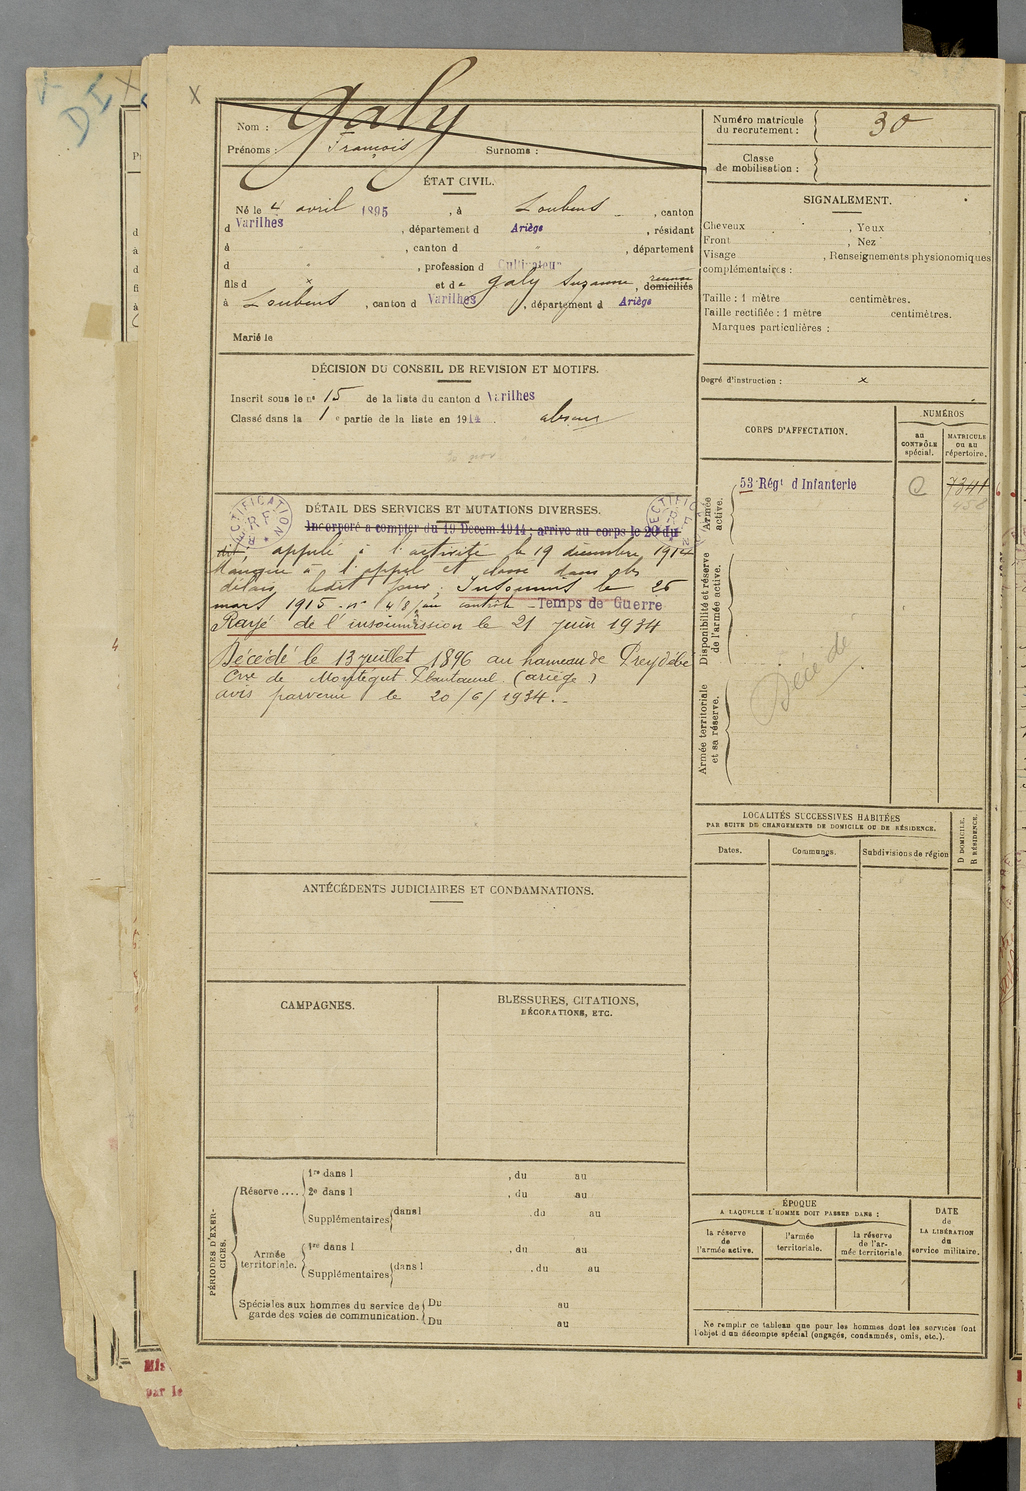 Nom : Galy
Prénoms : François Surnoms :
Numéro matricule du recrutement : 30
Classe de mobilisation :
ÉTAT CIVIL.
Né le 4 avril 1895, à Loubens, canton
d Varilhes, département d Ariège, résidant
à , canton d , département
d , profession d Cultivateur
fils d x et de Galy Suzanne, domiciliés
à Loubens, canton d Varilhes, département d Ariège
Marié le
SIGNALEMENT.
Cheveux , Yeux
Front , Nez
Visage , Renseignements physionomiques
complémentaires :
Taille : 1 mètre centimètres.
Taille rectifiée : 1 mètre centimètres.
Marques particulières :
Degré d'instruction : x
DÉCISION DU CONSEIL DE REVISION ET MOTIFS.
Inscrit sous le n° 15 de la liste du canton d Varilhes
Classé dans la 1e partie de la liste en 1914. absent
CORPS D'AFFECTATION.
NUMÉROS
au CONTRÔLE spécial.
MATRICULE ou au répertoire.
Armée active.
53 Régt d Infanterie
7341
Disponibilité et réserve de l'armée active.
Armée territoriale et sa réserve.
Décédé
DÉTAIL DES SERVICES ET MUTATIONS DIVERSES.
RECTIFICATION R F
RECTIFICATION R F
Incorporé à compter du 19 Decem. 1914 ; arrivé au corps le 20 du
dit appelé à l'activité le 19 décembre 1914
Manque à l'appel et classé dans les
délais ledit jour, Insoumis le 25
mars 1915 - n° 48 au contrôle - Temps de Guerre
Rayé de l'insoumission le 21 juin 1934
Décédé le 13 juillet 1896 au hameau de
Cne de Montégut Plantaurel (ariège)
avis parvenu le 20/6/1934.-
LOCALITÉS SUCCESSIVES HABITÉES
PAR SUITE DE CHANGEMENTS DE DOMICILE OU DE RÉSIDENCE.
Dates.
Communes.
Subdivisions de région
D DOMICILE.
R RÉSIDENCE.
ANTÉCÉDENTS JUDICIAIRES ET CONDAMNATIONS.
CAMPAGNES.
BLESSURES, CITATIONS,
DÉCORATIONS, ETC.
PÉRIODES D'EXERCICES.
Réserve .... 1re dans l , du au
2e dans l , du au
Supplémentaires dans l , du au
Armée territoriale. 1re dans l , du au
Supplémentaires dans l , du au
Spéciales aux hommes du service de garde des voies de communication. Du au
Du au
ÉPOQUE
A LAQUELLE L'HOMME DOIT PASSER DANS :
la réserve de l'armée active.
l'armée territoriale.
la réserve de l'armée territoriale
DATE de LA LIBÉRATION du service militaire.
Ne remplir ce tableau que pour les hommes dont les services font
l'objet d'un décompte spécial (engagés, condamnés, omis, etc.).